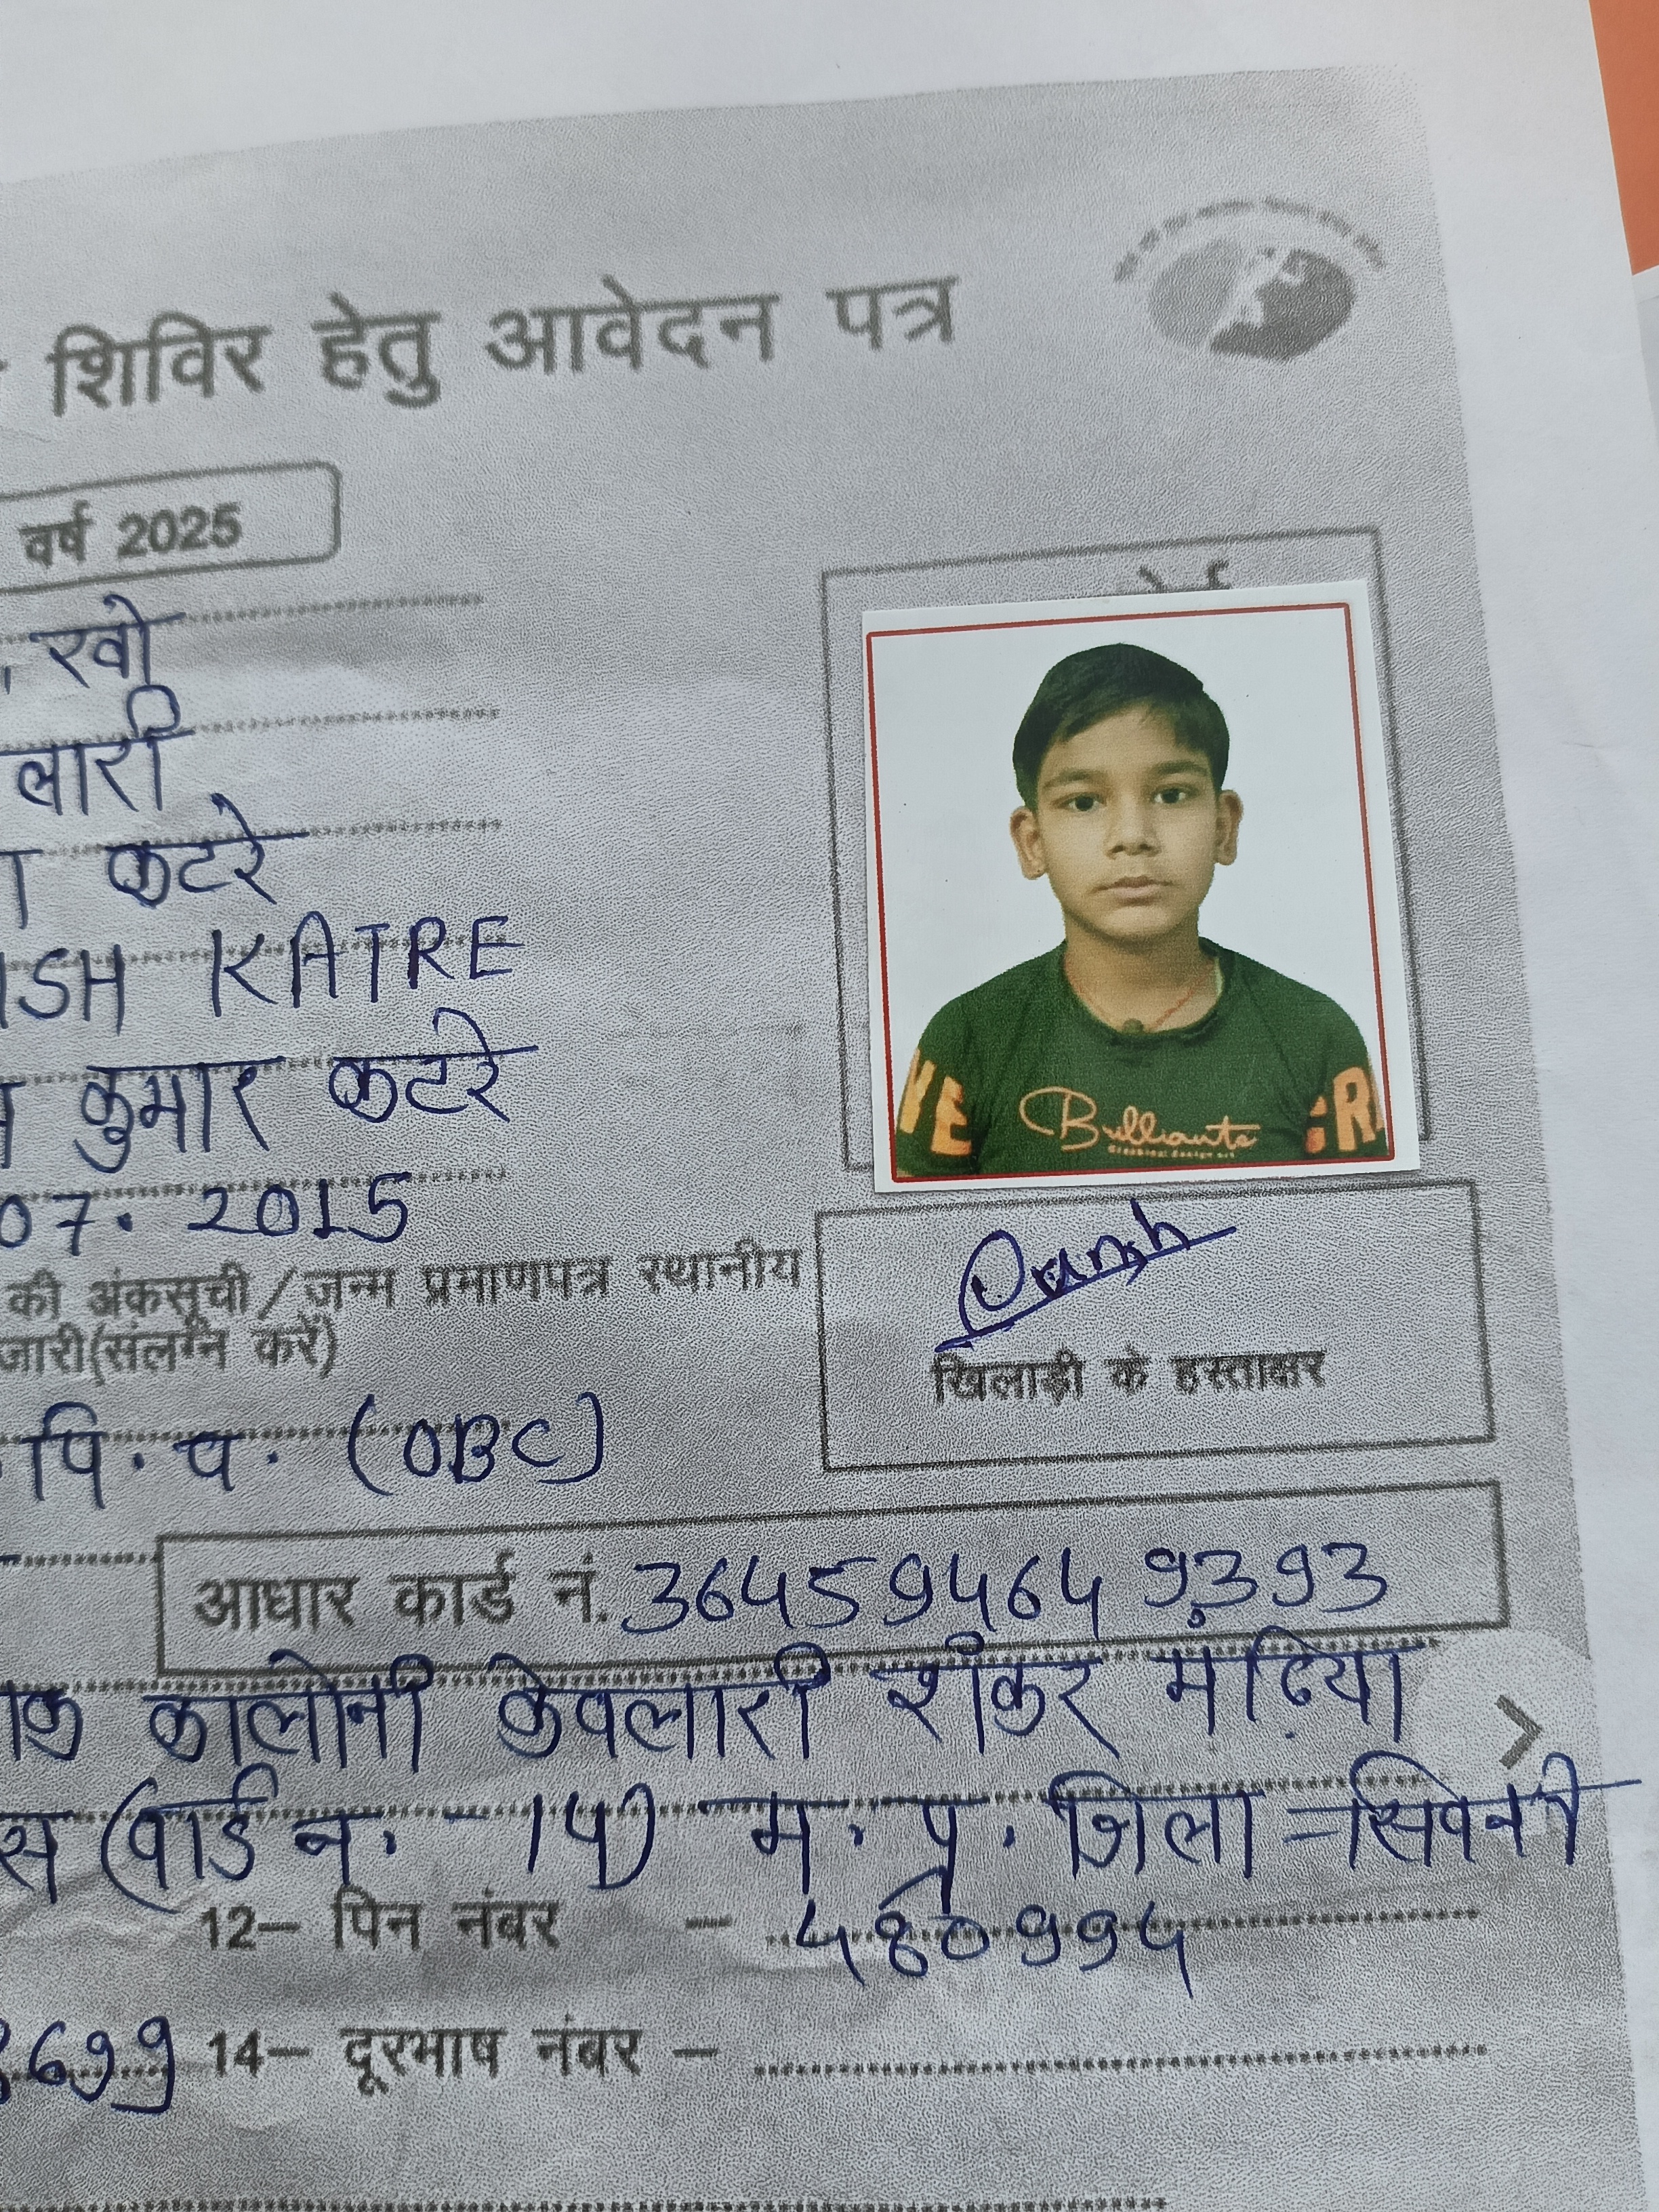 शिविर हेतु आवेदन पत्र
वर्ष 2025
, खो
लारी
कटरे
ISH KATRE
कुमार कटरे
07. 2015
की अंकसूची / जन्म प्रमाणपत्र स्थानीय
जारी(संलग्न करें)
Bulliants
खिलाड़ी के हस्ताक्षर
पि. व. (OBC)
आधार कार्ड नं. 364594649393
कालोनी केवलारी शंकर मढ़िया
(वार्ड न. - 14) म. प्र. जिला = सिवनी
12– पिन नंबर – 480994
8699 14– दूरभाष नंबर –